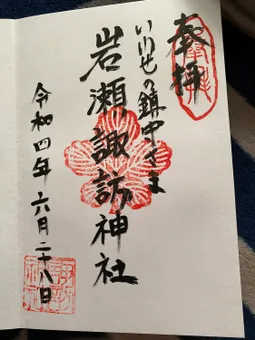 奉拝
いわせの鎮守さま
岩瀬諏訪神社
令和四年六月二十八日